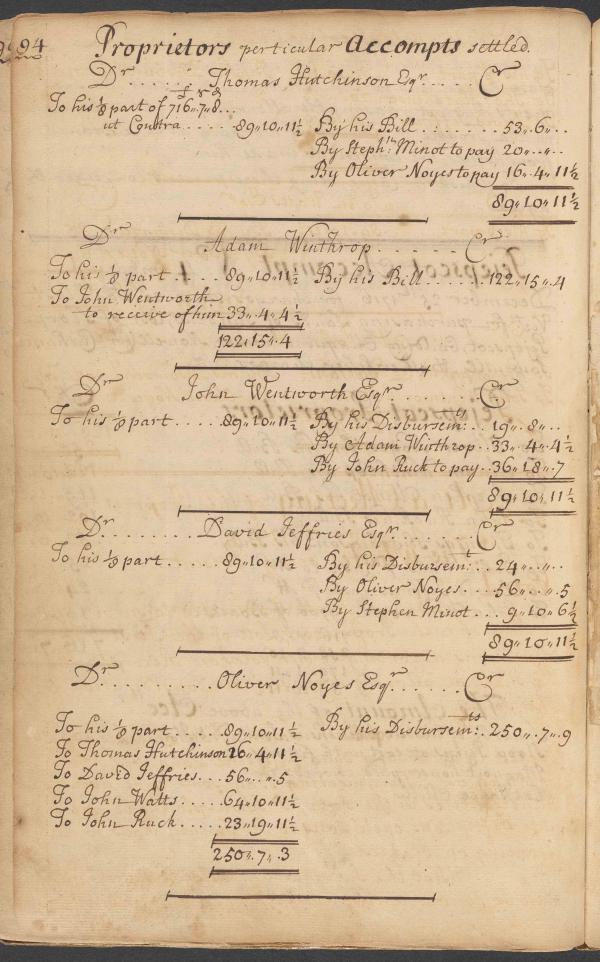 94 Proprietors perticular Accompts settled.
Dr ...... Thomas Hutchinson Esqr. .... Cr
£ s d
To his ⅛ part of 716..7..8...
ut Contra ..... 89..10..11½ By his Bill ....... 53..6...
By Stephn: Minot to pay 20..,..
By Oliver Noyes to pay 16..4..11½
89..10..11½
Dr Adam Winthrop ...... Cr
To his ⅛ part ..... 89..10..11½ By his Bill ...... 122..15..4
To John Wentworth
to receive of him 33..4..4½
122..15..4
Dr John Wentworth Esqr. ...... Cr
To his ⅛ part ..... 89..10..11½ By his Disbursemts: .. 19..8...
By Adam Winthrop .. 33..4..4½
By John Ruck to pay .. 36..18..7
89..10..11½
Dr ........ David Jeffries Esqr. ...... Cr
To his ⅛ part ..... 89..10..11½ By his Disbursemt: .. 24..,..
By Oliver Noyes ... 56..,..5
By Stephen Minot ... 9..10..6½
89..10..11½
Dr ......... Oliver Noyes Esqr ...... Cr
To his ⅛ part ..... 89..10..11½ By his Disbursemts: .. 250..7..9
To Thomas Hutchinson 16..4..11½
To David Jeffries ... 56..,..5
To John Watts ..... 64..10..11½
To John Ruck ..... 23..19..11½
250..7..3